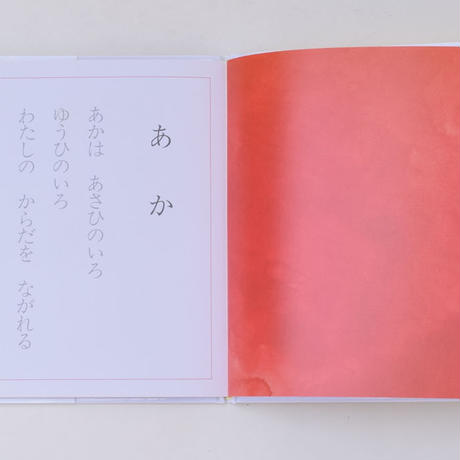 あか
あかは　あさひのいろ
ゆうひのいろ
わたしの　からだを　ながれる